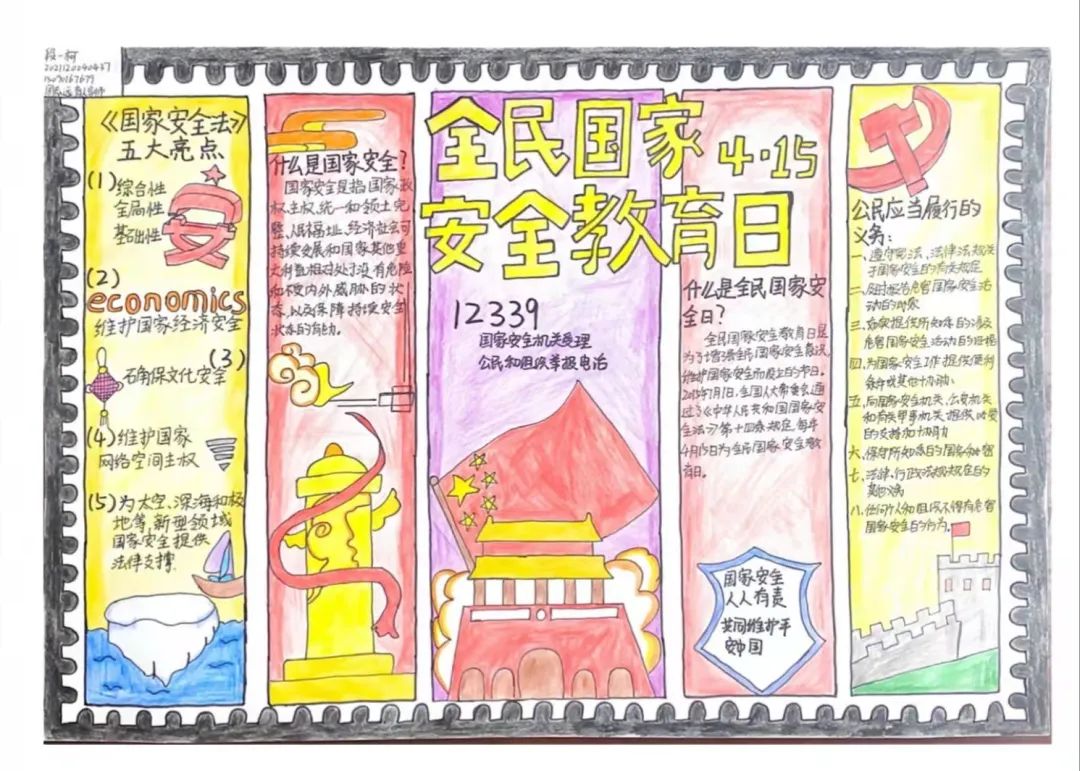 段一柯
《国家安全法》
五大亮点
(1)
综合性
全局性
基础性
安
(2)
economics
维护国家经济安全
(3)
确保文化安全
(4)维护国家
网络空间主权
(5)为太空、深海和极
地等,新型领域
国家安全提供
法律支撑.
什么是国家安全?
国家安全是指国家政
权、主权、统一和领土完
整、人民福祉、经济社会可
持续发展和国家其他重
大利益相对处于没有危险
和不受内外威胁的状
态,以及保障持续安全
状态的能力。
全民国家 4·15
安全教育日
12339
国家安全机关受理
公民和组织举报电话
什么是全民国家安
全日?
全民国家安全教育日是
为了增强全民国家安全意识,
维护国家安全而设立的节日。
2015年7月1日,全国人大常委会通
过了《中华人民共和国国家安
全法》第十四条规定,每年
4月15日为全民国家安全教
育日。
国家安全
人人有责
共同维护平
安中国
公民应当履行的
义务:
一、遵守宪法、法律法规关
于国家安全的有关规定
二、及时报告危害国家安全活
动的线索
三、如实提供所知悉的涉及
危害国家安全活动的证据
四、为国家安全工作提供便利
条件或其他协助
五、向国家安全机关、公安机关
和有关军事机关提供必要
的支持和协助
六、保守所知悉的国家秘密
七、法律、行政法规规定的
其他义务
八、任何个人和组织不得有危害
国家安全的行为。